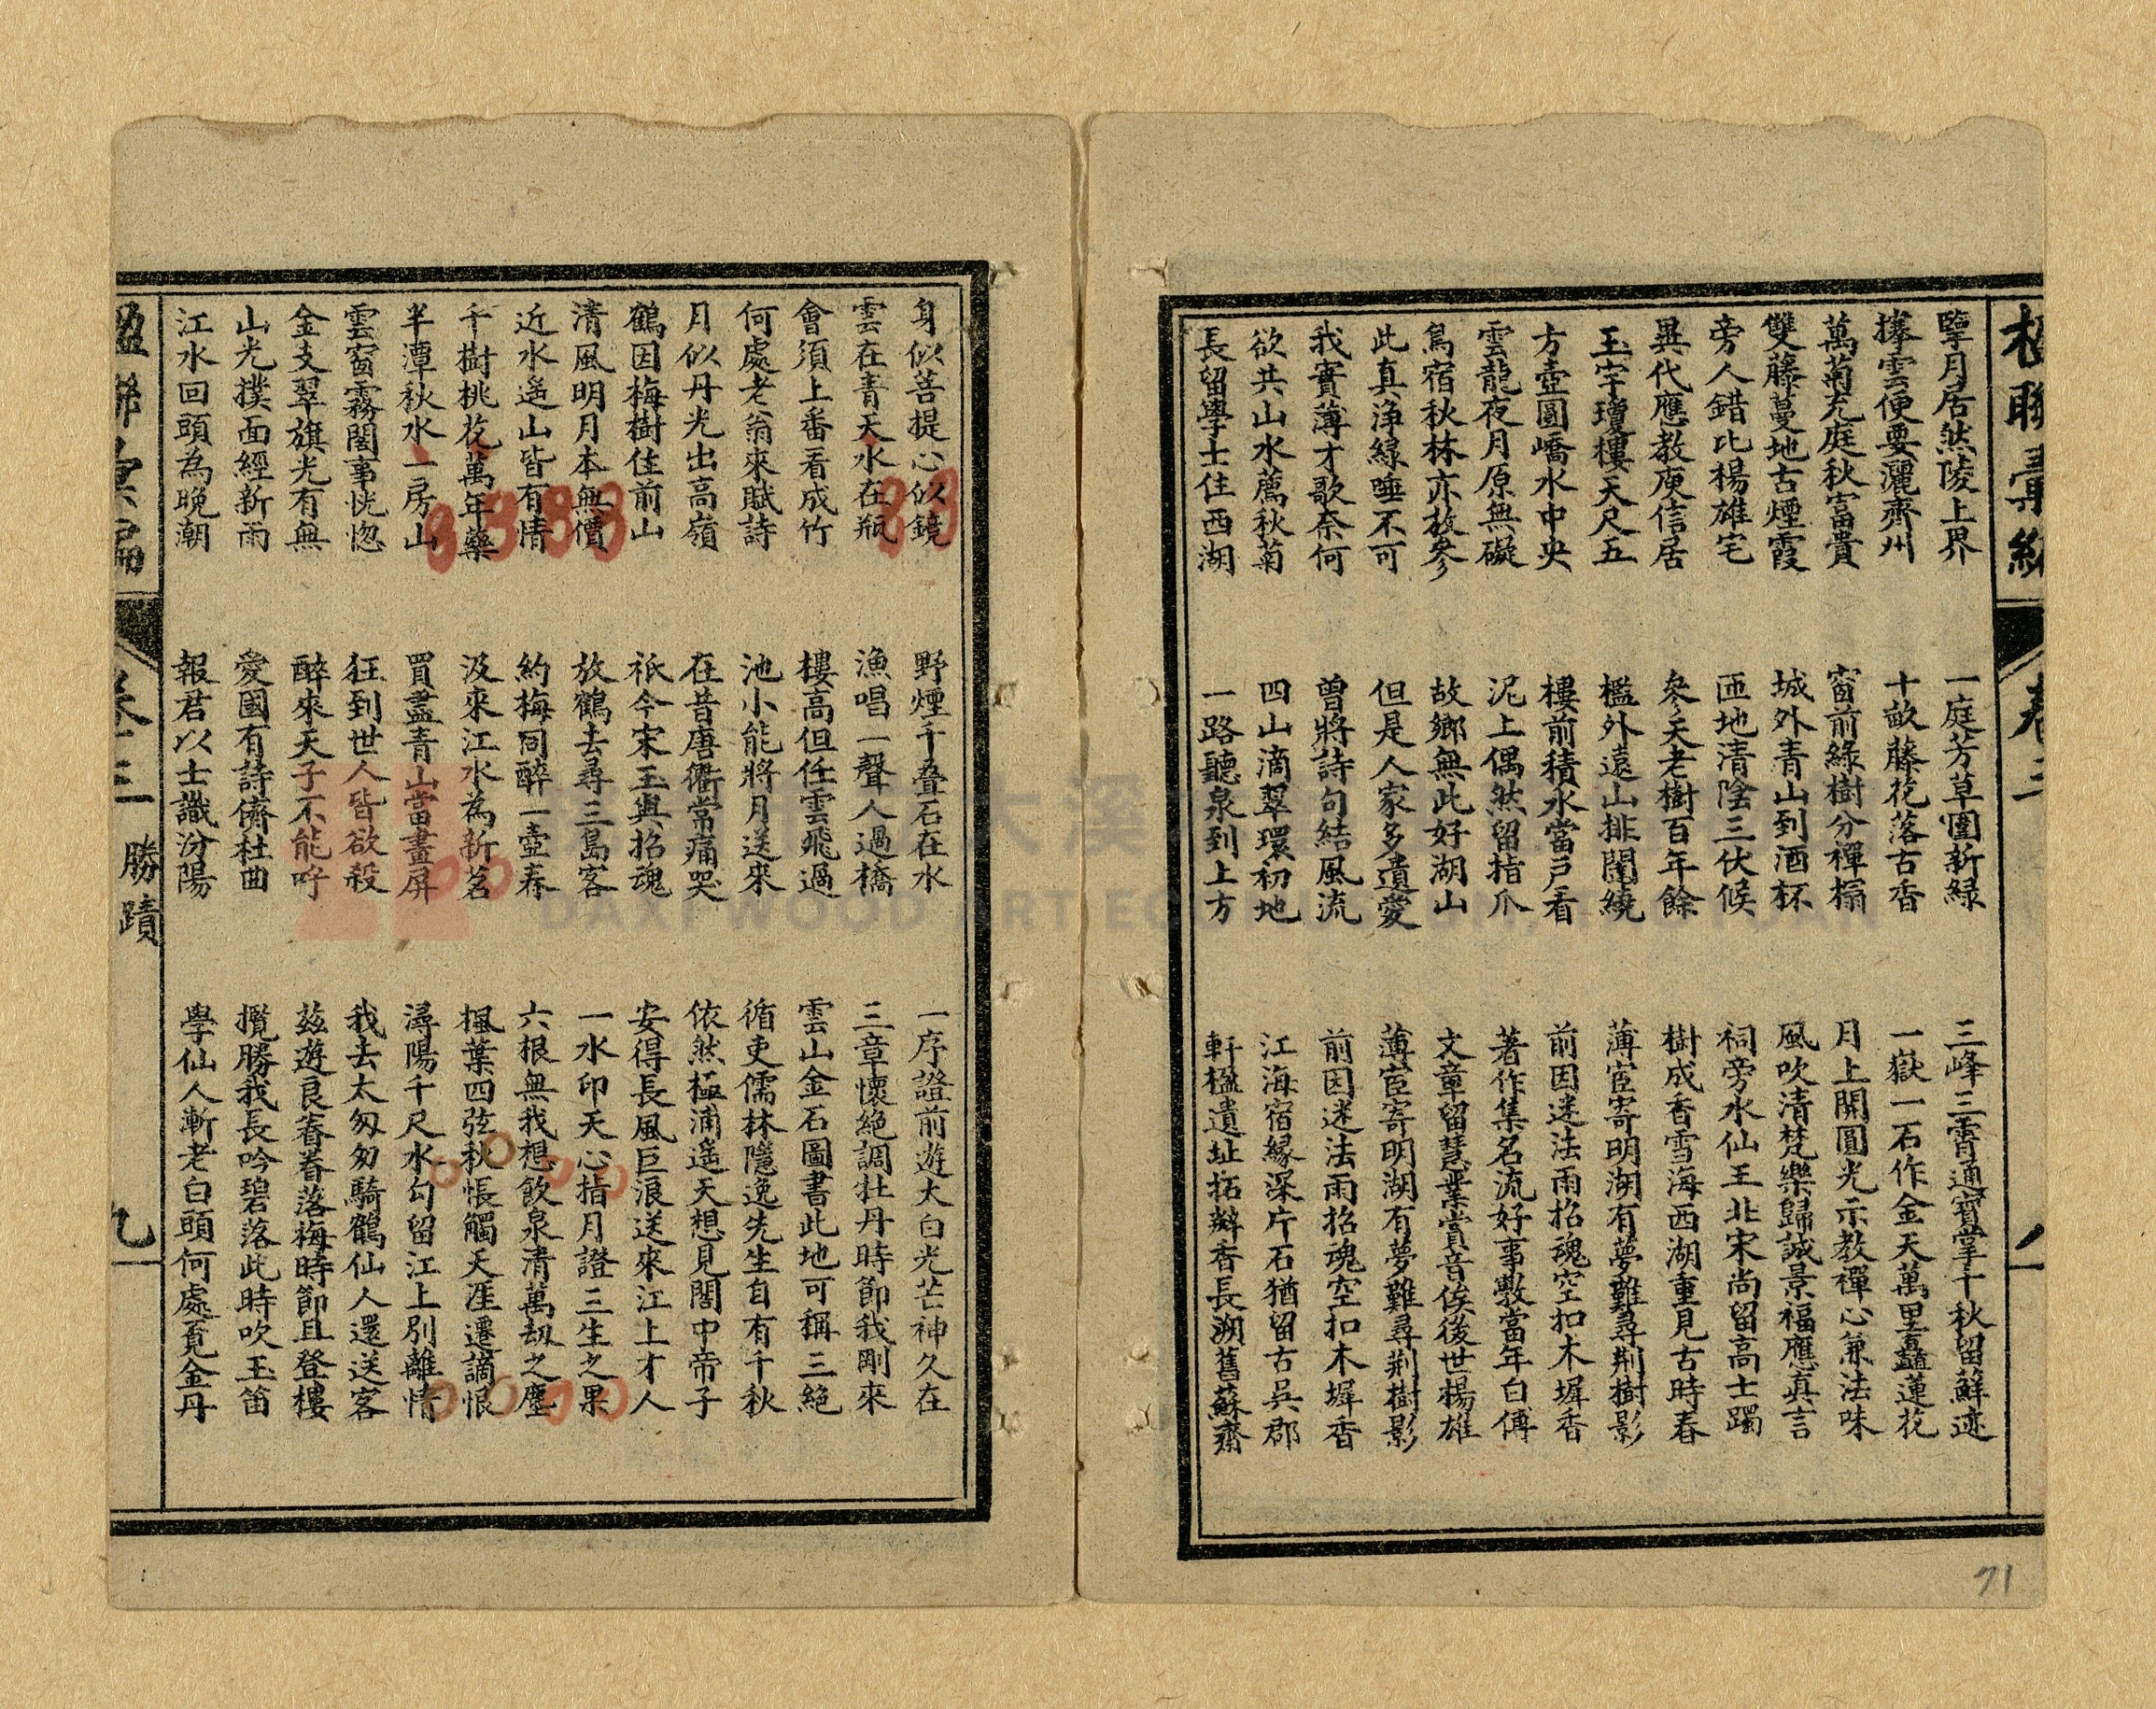 楹聯彙編
卷三
八
擥月居然陵上界
捧雲便要灑齊州
萬菊充庭秋富貴
雙藤蔓地古煙霞
旁人錯比楊雄宅
異代應教庾信居
玉宇瓊樓天尺五
方壺圓嶠水中央
雲龍夜月原無礙
鳥宿秋林亦放參
此真淨綠唾不可
我實薄才歌奈何
欲共山水薦秋菊
長留學士住西湖
一庭芳草圍新綠
十畝藤花落古香
窗前綠樹分禪榻
城外青山到酒杯
匝地清陰三伏候
參天老樹百年餘
檻外遠山排闥繞
樓前積水當戶看
泥上偶然留指爪
故鄉無此好湖山
但是人家多遺愛
曾將詩句結風流
四山滴翠環初地
一路聽泉到上方
三峰三霄通寶掌千秋留蘚迹
一嶽一石作金天萬里矗蓮花
月上開圓光示教禪心兼法味
風吹清梵樂歸誠景福應真言
祠旁水仙王北宋尚留高士躅
樹成香雪海西湖重見古時春
薄宦寄明湖有夢難尋荆樹影
前因迷法雨招魂空扣木墀香
著作集名流好事數當年白傅
文章留慧業賞音俟後世楊雄
薄宦寄明湖有夢難尋荆樹影
前因迷法雨招魂空扣木墀香
江海宿緣深片石猶留古吳郡
軒楹遺址拓瓣香長溯舊蘇齋
71
身似菩提心似鏡
雲在青天水在瓶
會須上番看成竹
何處老翁來賦詩
月似丹光出高嶺
鶴因梅樹住前山
清風明月本無價
近水遙山皆有情
千樹桃花萬年藥
半潭秋水一房山
雲窗霧閣事恍惚
金支翠旗光有無
山光撲面經新雨
江水回頭為晚潮
野煙千叠石在水
漁唱一聲人過橋
樓高但任雲飛過
池小能將月送來
在昔唐衢常痛哭
祇今宋玉與招魂
放鶴去尋三島客
約梅同醉一壺春
汲來江水為新茗
買盡青山當畫屏
狂到世人皆欲殺
醉來天子不能呼
愛國有詩儕杜曲
報君以士識汾陽
一序證前遊太白光芒神久在
三章懷絶調牡丹時節我剛來
雲山金石圖書此地可稱三絶
循吏儒林隱逸先生自有千秋
依然極浦遙天想見閣中帝子
安得長風巨浪送來江上才人
一水印天心指月證三生之果
六根無我想飲泉清萬劫之塵
楓葉四弦秋悵觸天涯遷謫恨
潯陽千尺水勾留江上別離情
我去太匆匆騎鶴仙人還送客
茲遊良眷眷落梅時節且登樓
攬勝我長吟碧落此時吹玉笛
學仙人漸老白頭何處覓金丹
楹聯彙編
卷三
勝蹟
九